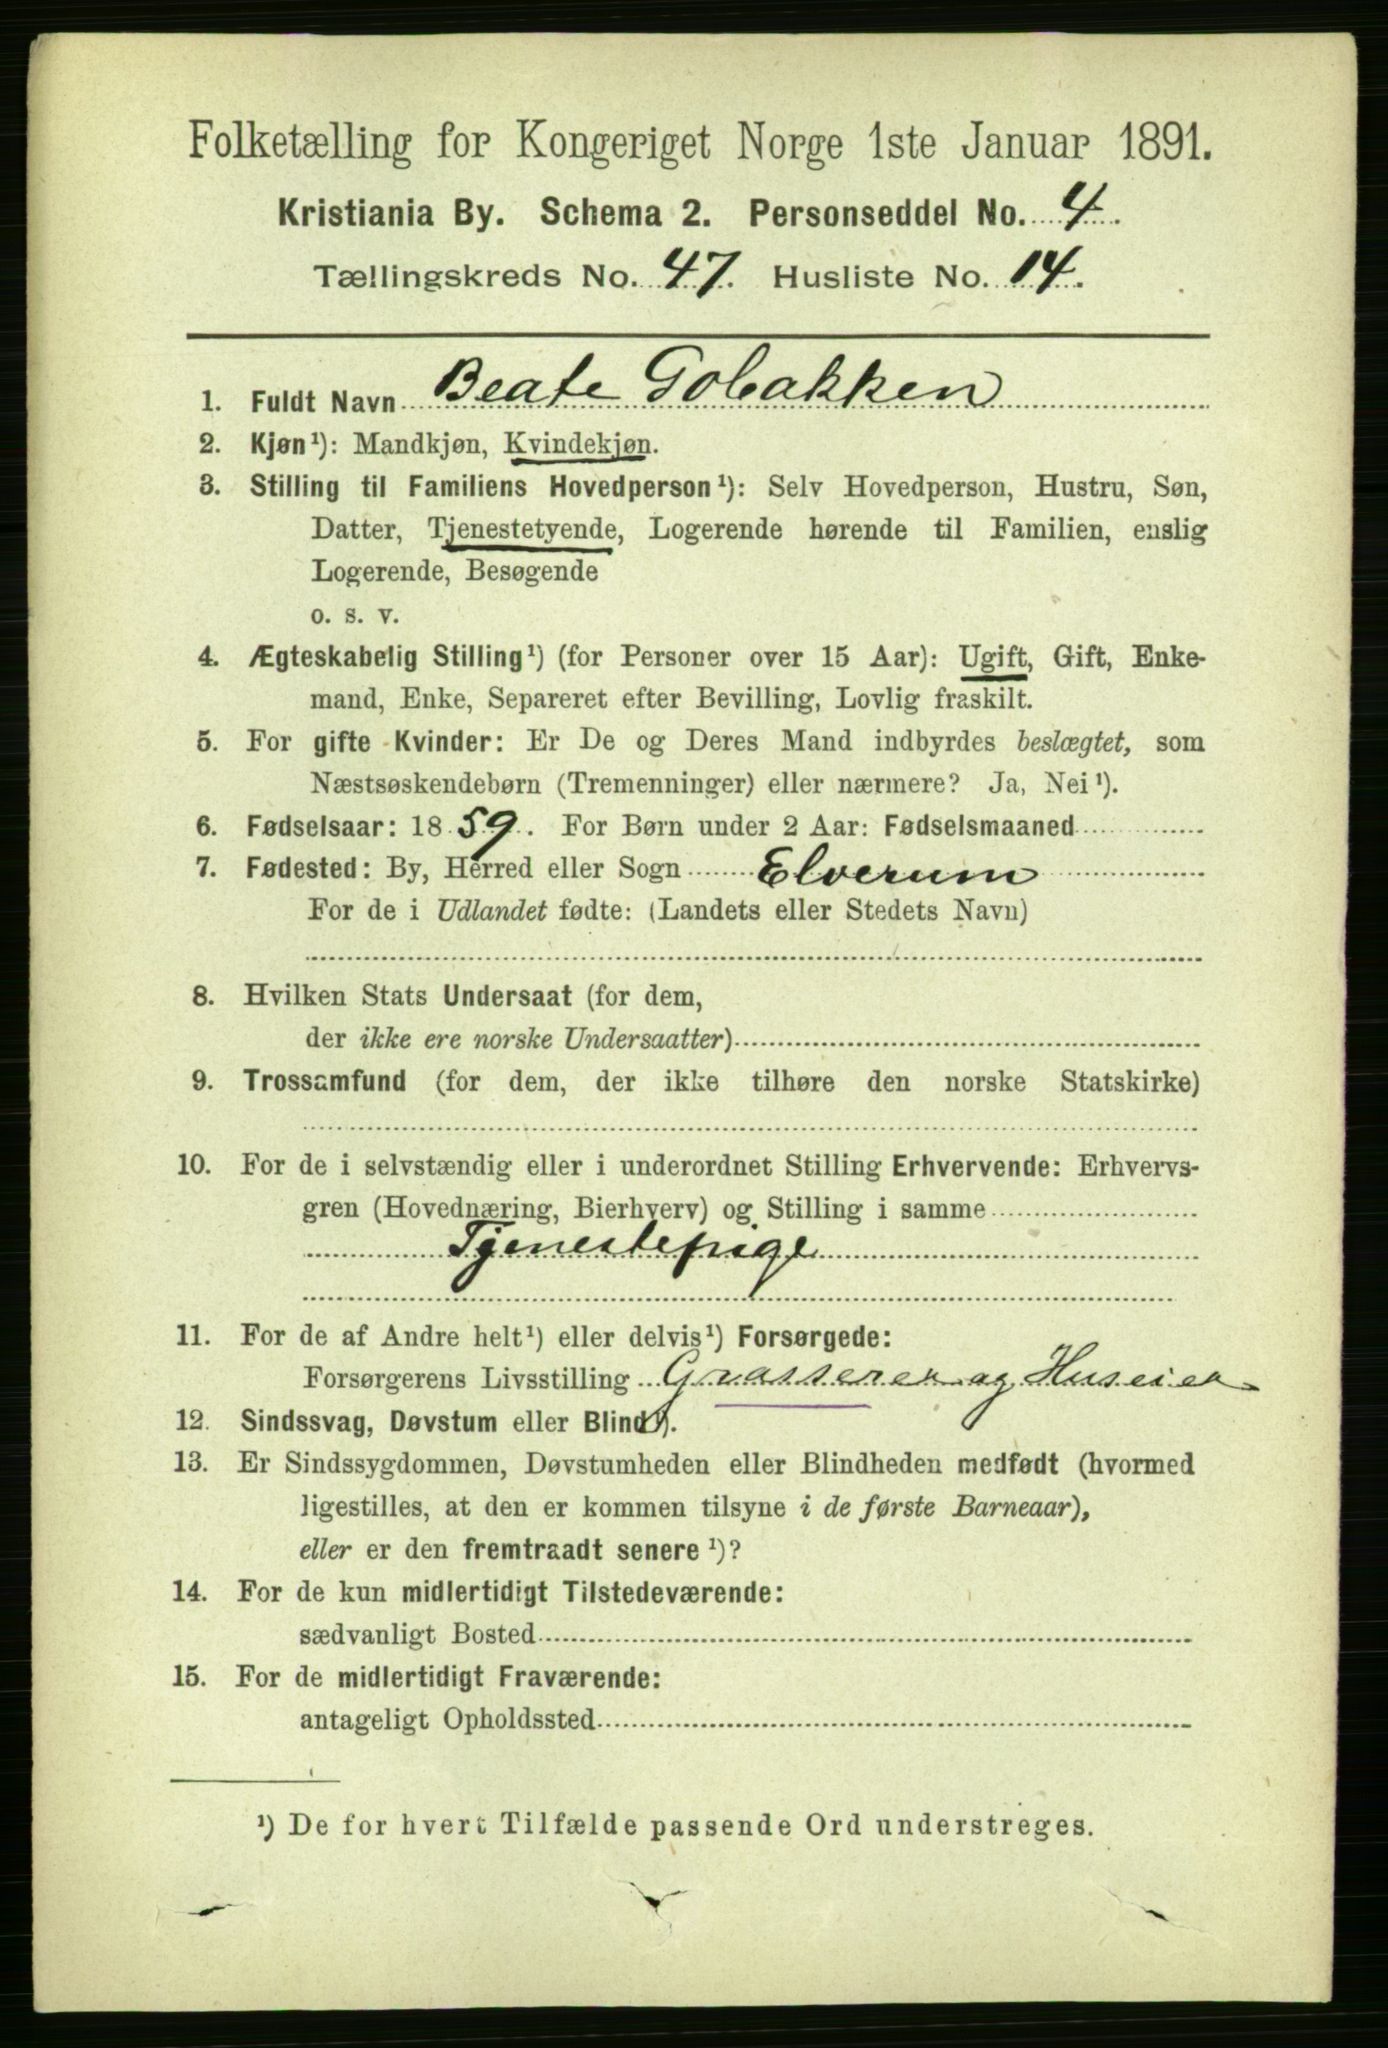 Folketælling for Kongeriget Norge 1ste Januar 1891.
Kristiania By. Schema 2. Personseddel No. 4.
Tællingskreds No. 47. Husliste No. 14.
1. Fuldt Navn Beate Gobakken
2. Kjøn¹): Mandkjøn, Kvindekjøn.
3. Stilling til Familiens Hovedperson¹): Selv Hovedperson, Hustru, Søn,
Datter, Tjenestetyende, Logerende hørende til Familien, enslig
Logerende, Besøgende
o. s. v.
4. Ægteskabelig Stilling¹) (for Personer over 15 Aar): Ugift, Gift, Enke-
mand, Enke, Separeret efter Bevilling, Lovlig fraskilt.
5. For gifte Kvinder: Er De og Deres Mand indbyrdes beslægtet, som
Næstsøskendebørn (Tremenninger) eller nærmere? Ja, Nei¹).
6. Fødselsaar: 1859. For Børn under 2 Aar: Fødselsmaaned
7. Fødested: By, Herred eller Sogn Elverum
For de i Udlandet fødte: (Landets eller Stedets Navn)
8. Hvilken Stats Undersaat (for dem,
der ikke ere norske Undersaatter)
9. Trossamfund (for dem, der ikke tilhøre den norske Statskirke)
10. For de i selvstændig eller i underordnet Stilling Erhvervende: Erhvervs-
gren (Hovednæring, Bierhverv) og Stilling i samme
Tjenestepige
11. For de af Andre helt¹) eller delvis¹) Forsørgede:
Forsørgerens Livsstilling Grosserer og Huseier
12. Sindssvag, Døvstum eller Blind¹).
13. Er Sindssygdommen, Døvstumheden eller Blindheden medfødt (hvormed
ligestilles, at den er kommen tilsyne i de første Barneaar),
eller er den fremtraadt senere¹)?
14. For de kun midlertidigt Tilstedeværende:
sædvanligt Bosted
15. For de midlertidigt Fraværende:
antageligt Opholdssted
¹) De for hvert Tilfælde passende Ord understreges.